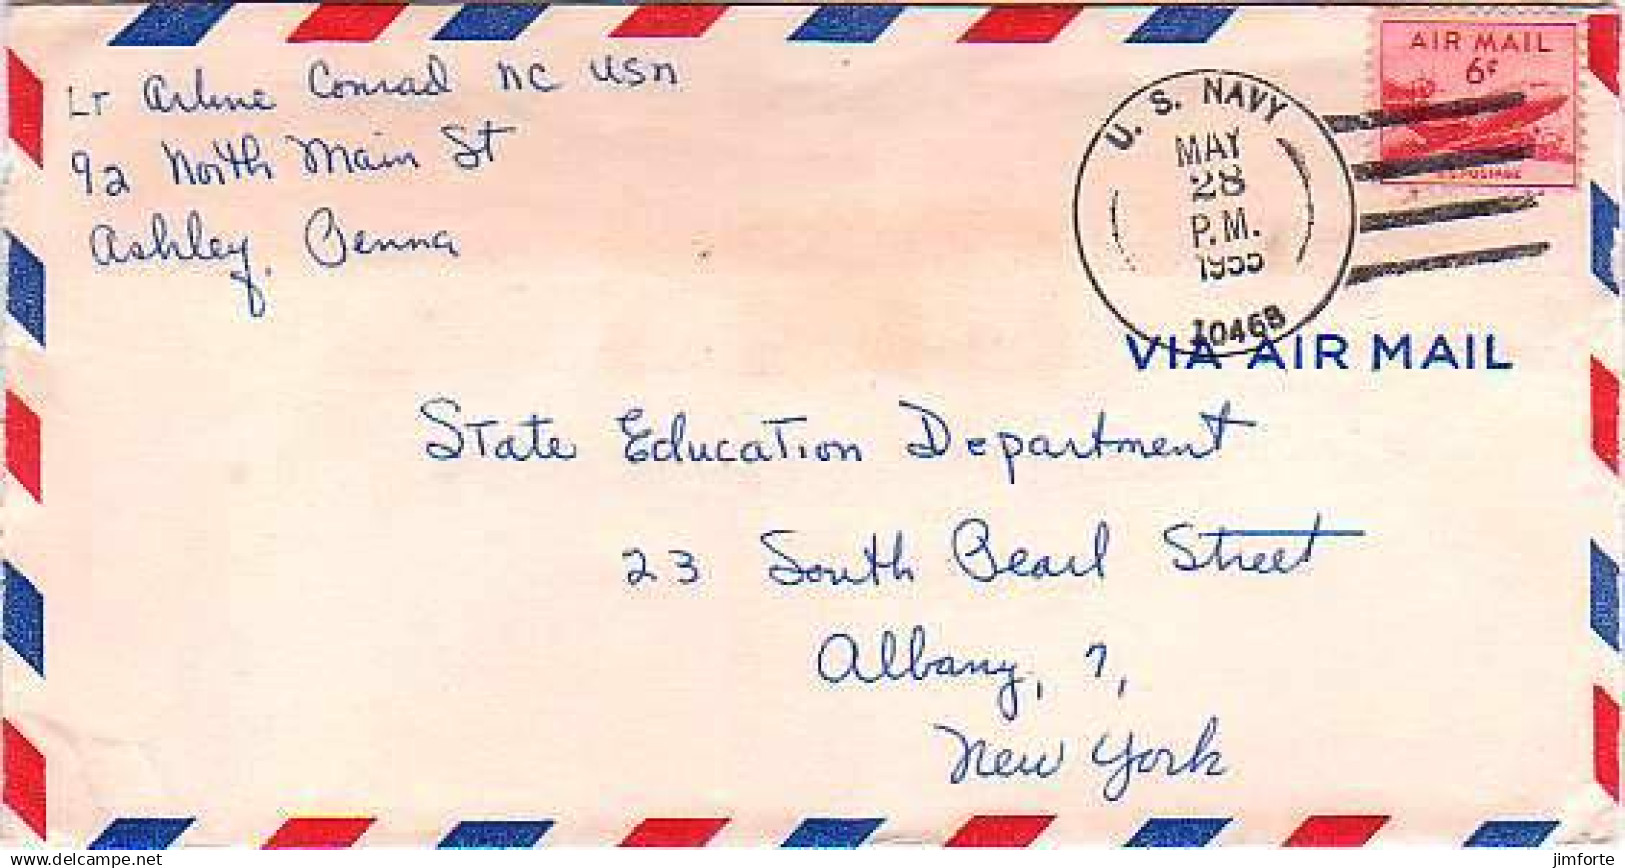 LT Arline Conrad NC USN
92 North Main St
Ashley, Penna
U. S. NAVY
MAY
28
P.M.
1955
10468
AIR MAIL
6¢
U.S. POSTAGE
VIA AIR MAIL
State Education Department
23 South Pearl Street
Albany, 7,
New York
delcampe.net
jimforte